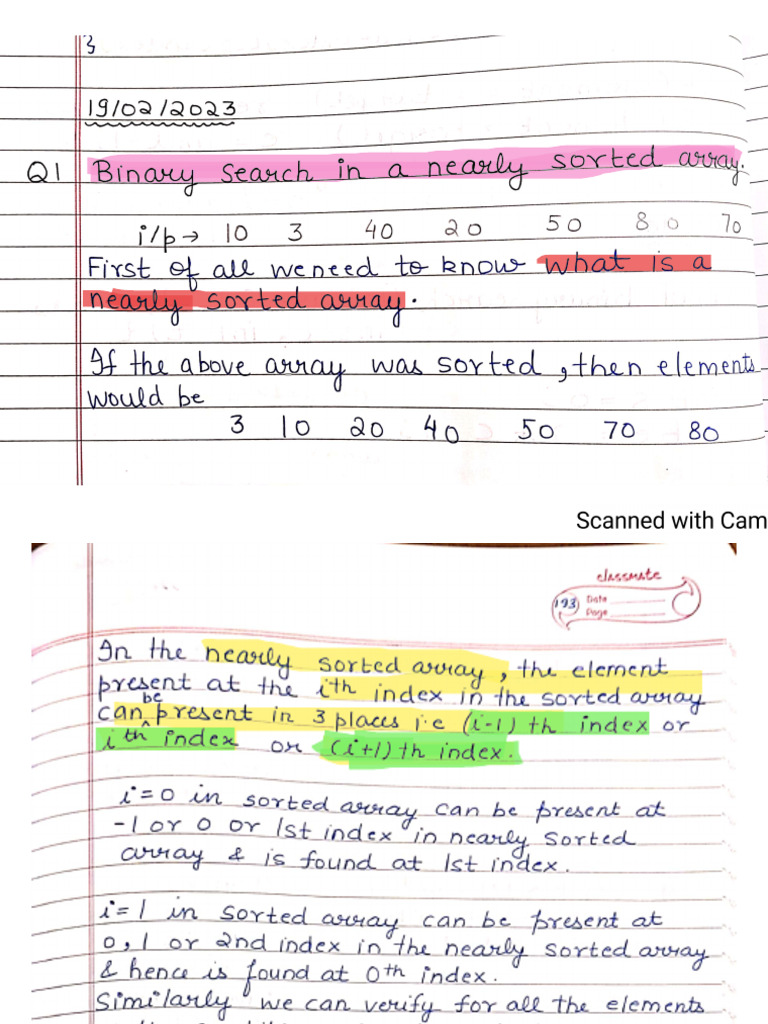 19/02/2023
Q1 Binary search in a nearly sorted array.
i/p → 10 3 40 20 50 80 70
First of all we need to know what is a
nearly sorted array.
If the above array was sorted, then elements
would be
3 10 20 40 50 70 80
Scanned with Cam
classmate
193 Date
Page
In the nearly sorted array, the element
present at the ith index in the sorted array
can be present in 3 places i.e (i-1)th index or
ith index or (i+1)th index.
i=0 in sorted array can be present at
-1 or 0 or 1st index in nearly sorted
array & is found at 1st index.
i=1 in sorted array can be present at
0,1 or 2nd index in the nearly sorted array
& hence is found at 0th index.
Similarly we can verify for all the elements